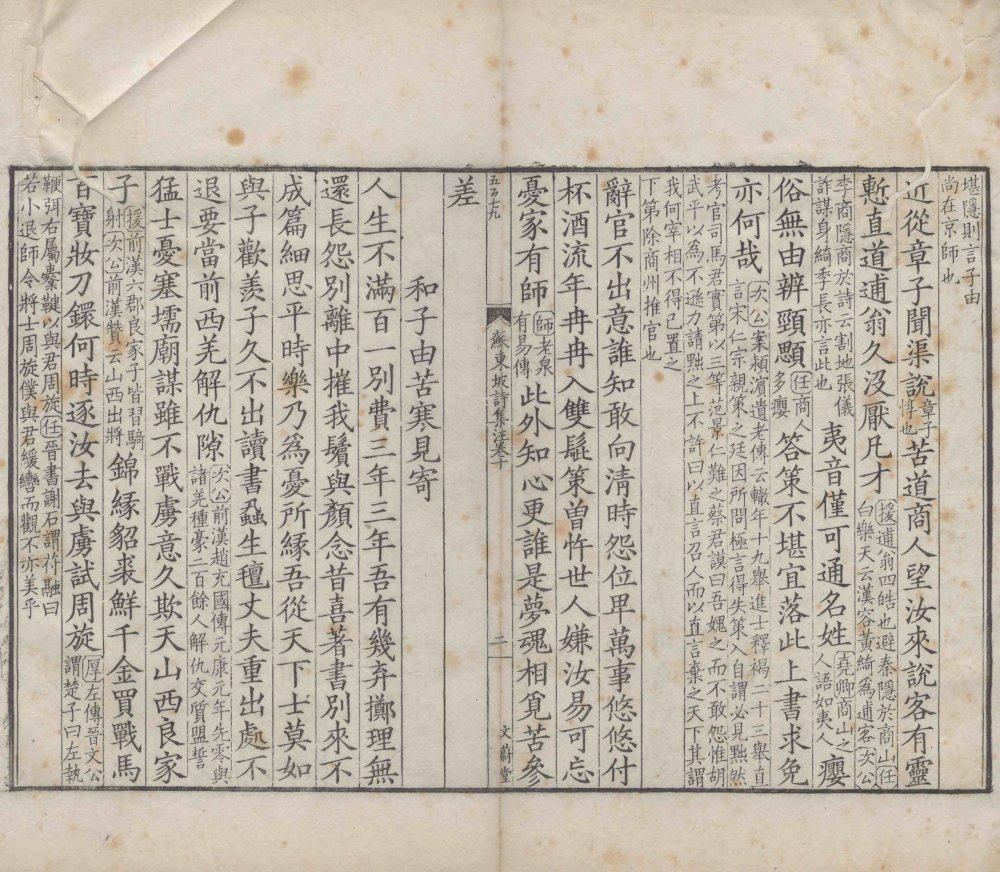 堪隱則言子由尚在京師也
近從章子聞渠說章子惇也苦道商人望汝來說客有靈
慙直道逋翁久沒厭凡才援逋翁四皓也避秦隱於商山任白樂天云漢容黃綺為逋客次公
李商隱商於詩云割地張儀詐謀身綺季長亦言此也夷音僅可通名姓堯卿商山之人語如夷人癭
俗無由辨頸顋任商人多癭答策不堪宜落此上書求免
亦何哉次公案潁濱遺老傳云轍年十九舉進士釋褐二十三舉直言宋仁宗親策之廷因所問極言得失策入自謂必見黜然
考官司馬君實第以三等范景仁難之蔡君謨曰吾媿之而不敢怨惟胡武平以為不遜力請黜之上不許曰以直言召人而以直言棄之天下其謂
我何宰相不得已置之下第除商州推官也
辭官不出意誰知敢向清時怨位卑萬事悠悠付
杯酒流年冉冉入雙髭策曾忤世人嫌汝易可忘
憂家有師師老泉有易傳此外知心更誰是夢魂相覓苦參
五百七九
蘇東坡詩集注卷十
二
文蔚堂
差
和子由苦寒見寄
人生不滿百一別費三年三年吾有幾棄擲理無
還長怨別離中摧我鬢與顏念昔喜著書別來不
成篇細思平時樂乃為憂所緣吾從天下士莫如
與子歡羨子久不出讀書蝨生氊丈夫重出處不
退要當前西羌解仇隙次公前漢趙充國傳元康元年先零與諸羌種豪二百餘人解仇交質盟誓
猛士憂塞壖廟謀雖不戰虜意久欺天山西良家
子援前漢六郡良家子皆習騎射次公前漢贊云山西出將錦緣貂裘鮮千金買戰馬
百寶妝刀鐶何時逐汝去與虜試周旋厚左傳晉文公謂楚子曰左執
鞭弭右屬櫜鞬以與君周旋任晉書謝石謂苻融曰若小退師令將士周旋僕與君緩轡而觀不亦美乎